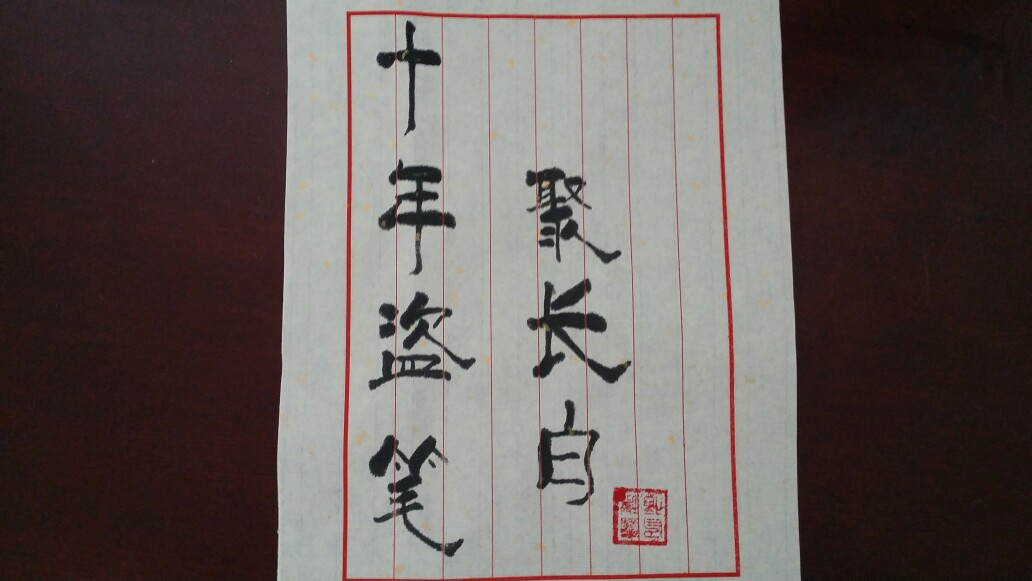 十年盗笔
聚长白